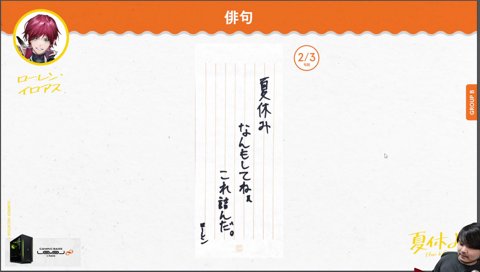 俳句
ローレン・
イロアス
2/3
夏休み
なんもしてねぇ
これ詰んだ。
ローレン
GROUP B
夏休み